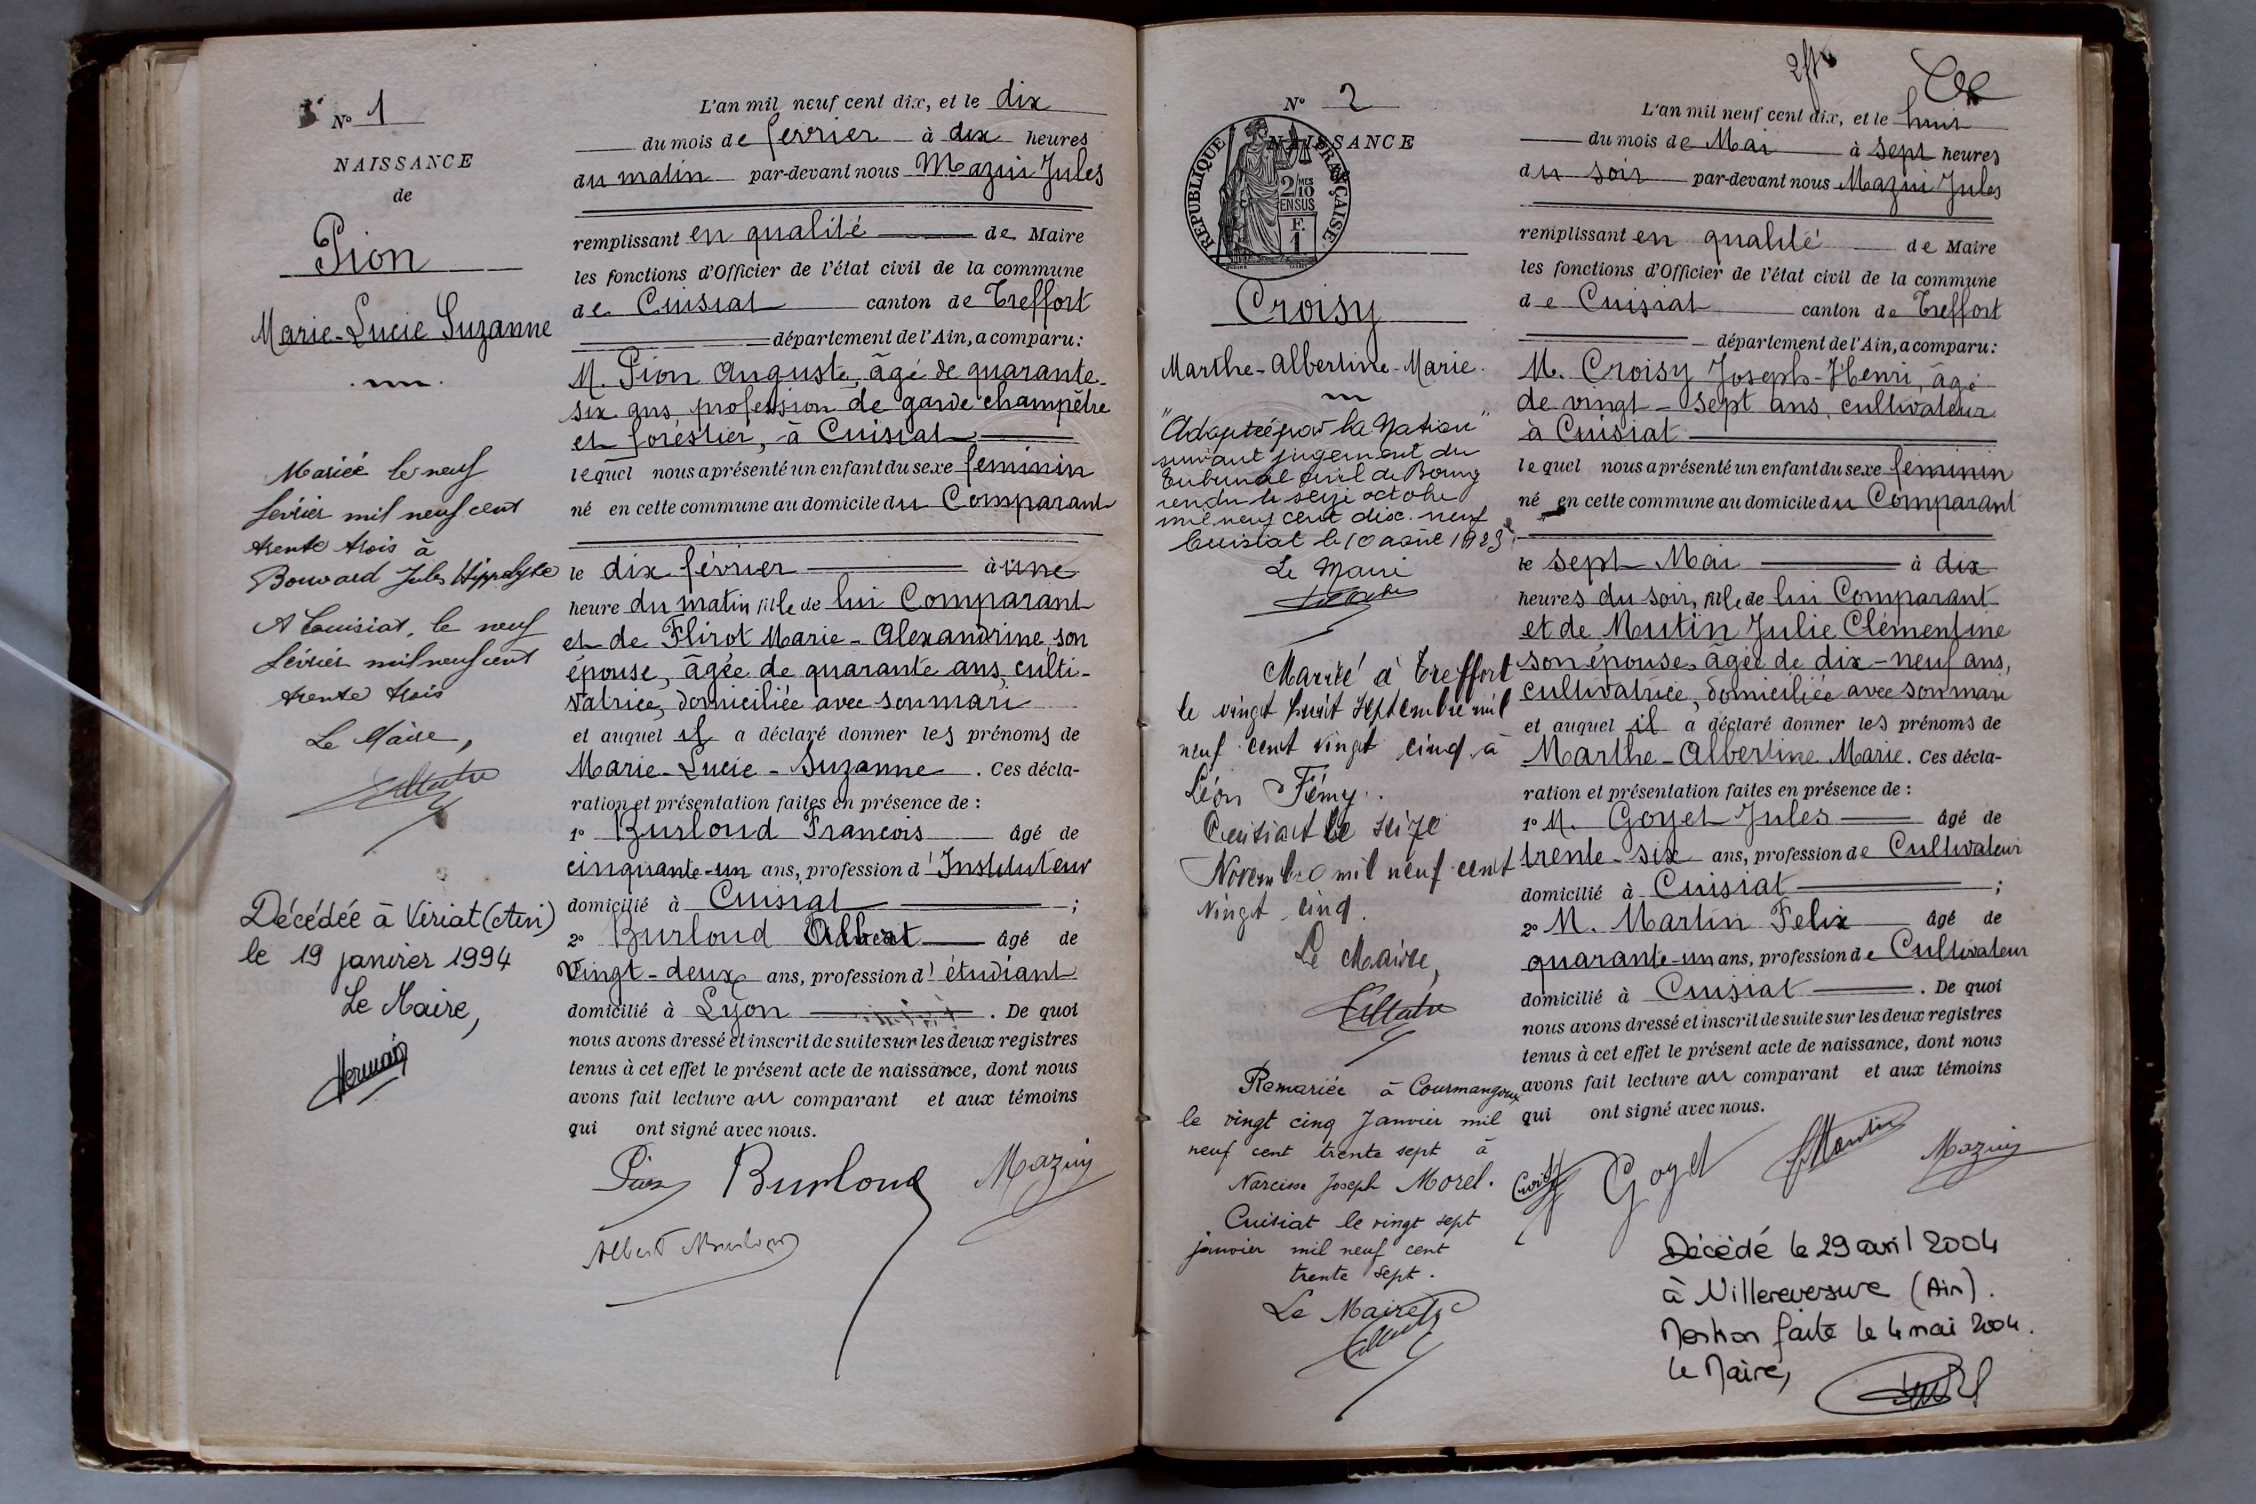 N° 1
NAISSANCE
de
Pion
Marie-Lucie Suzanne
Mariée le neuf
février mil neuf cent
trente trois à
Bouvard Jules Hippolyte
A Cuisiat, le neuf
février mil neuf cent
trente trois
Le Maire,
Décédée à Viriat (Ain)
le 19 janvier 1994
Le Maire,
L'an mil neuf cent dix, et le dix
du mois de février à dix heures
du matin par-devant nous Mazui Jules
remplissant en qualité de Maire
les fonctions d'Officier de l'état civil de la commune
de Cuisiat canton de Treffort
département de l'Ain, a comparu:
M. Pion Auguste, âgé de quarante-
six ans profession de garde champêtre
et forestier, à Cuisiat
lequel nous a présenté un enfant du sexe féminin
né en cette commune au domicile du Comparant
le dix février à une
heure du matin fille de lui Comparant
et de Flirot Marie-Alexandrine son
épouse, âgée de quarante ans, culti-
vatrice, domiciliée avec son mari
et auquel il a déclaré donner les prénoms de
Marie-Lucie-Suzanne. Ces décla-
ration et présentation faites en présence de :
1° Burloud François âgé de
cinquante-un ans, profession d'Instituteur
domicilié à Cuisiat ;
2° Burloud Albert âgé de
Vingt-deux ans, profession d'étudiant
domicilié à Lyon . De quoi
nous avons dressé et inscrit de suite sur les deux registres
tenus à cet effet le présent acte de naissance, dont nous
avons fait lecture au comparant et aux témoins
qui ont signé avec nous.
Pion Burloud Mazuy
Albert Burloud
N° 2
NAISSANCE
RÉPUBLIQUE FRANÇAISE
2/10 MES
EN SUS
F.
1
Croisy
Marthe-Albertine-Marie.
"Adoptée par la Nation"
suivant jugement du
Tribunal civil de Bourg
rendu le seize octobre
mil neuf cent dix-neuf
Cuisiat le 10 août 1923
Le Maire
Mariée à Treffort
le vingt huit septembre mil
neuf cent vingt cinq à
Léon Fémy.
Cuisiat le seize
Novembre mil neuf cent
vingt cinq.
Le Maire,
Remariée à Courmangoux
le vingt cinq Janvier mil
neuf cent trente sept à
Narcisse Joseph Morel.
Cuisiat le vingt sept
janvier mil neuf cent
trente sept.
Le Maire
L'an mil neuf cent dix, et le huit
du mois de Mai à sept heures
du soir par-devant nous Mazui Jules
remplissant en qualité de Maire
les fonctions d'Officier de l'état civil de la commune
de Cuisiat canton de Treffort
département de l'Ain, a comparu:
M. Croisy Joseph-Henri, âgé
de vingt-sept ans, cultivateur
à Cuisiat
lequel nous a présenté un enfant du sexe féminin
né en cette commune au domicile du Comparant
le sept Mai à dix
heures du soir, fille de lui Comparant
et de Mutin Julie Clémentine
son épouse, âgée de dix-neuf ans,
cultivatrice, domiciliée avec son mari
et auquel il a déclaré donner les prénoms de
Marthe-Albertine Marie. Ces décla-
ration et présentation faites en présence de :
1° M. Goyet Jules âgé de
trente-six ans, profession de Cultivateur
domicilié à Cuisiat ;
2° M. Martin Felix âgé de
quarante-un ans, profession de Cultivateur
domicilié à Cuisiat . De quoi
nous avons dressé et inscrit de suite sur les deux registres
tenus à cet effet le présent acte de naissance, dont nous
avons fait lecture au comparant et aux témoins
qui ont signé avec nous.
Croisy Goyet Martin Mazuy
Décédé le 29 avril 2004
à Villereversure (Ain).
Mention faite le 4 mai 2004.
Le Maire,